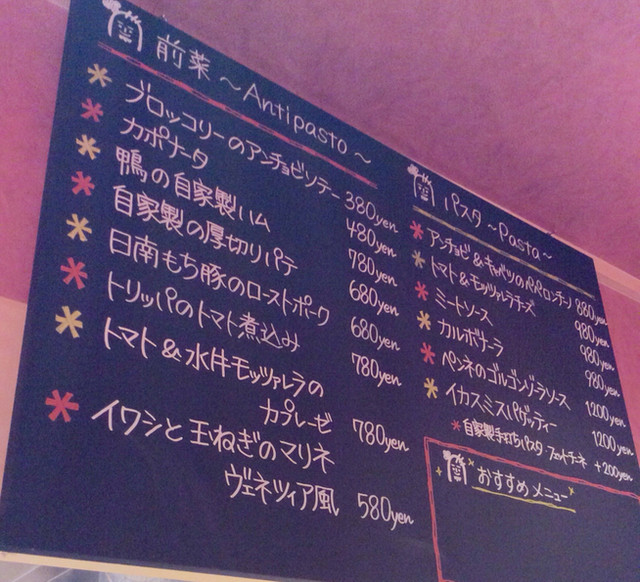 前菜 ～Antipasto～
ブロッコリーのアンチョビソテー 380yen
カポナータ 480yen
鴨の自家製ハム 780yen
自家製の厚切りパテ 680yen
日南もち豚のローストポーク 680yen
トリッパのトマト煮込み 780yen
トマト&水牛モッツァレラの
カプレーゼ 780yen
イワシと玉ねぎのマリネ
ヴェネツィア風 580yen
パスタ ～Pasta～
アンチョビ&キャベツのペペロンチーノ 880yen
トマト&モッツァレラチーズ 980yen
ミートソース 980yen
カルボナーラ 980yen
ペンネのゴルゴンゾーラソース 1200yen
イカスミスパゲッティー 1200yen
*自家製手打ちパスタ・フェットチーネ +200yen
おすすめメニュー